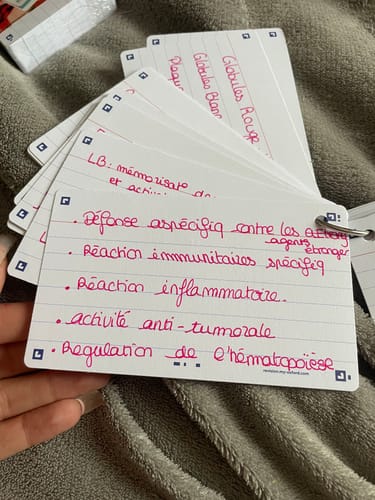 Globules Rouge
Globules Blan
Plaqu
LB: mémorisate de
et activi
• Défense aspécifiq contre les
agents
étranger
• Réaction immunitaires spécifiq
• Réaction inflammatoire.
• activité anti-tumorale
• Regulation de l'hématopoïèse
revision.my-oxford.com